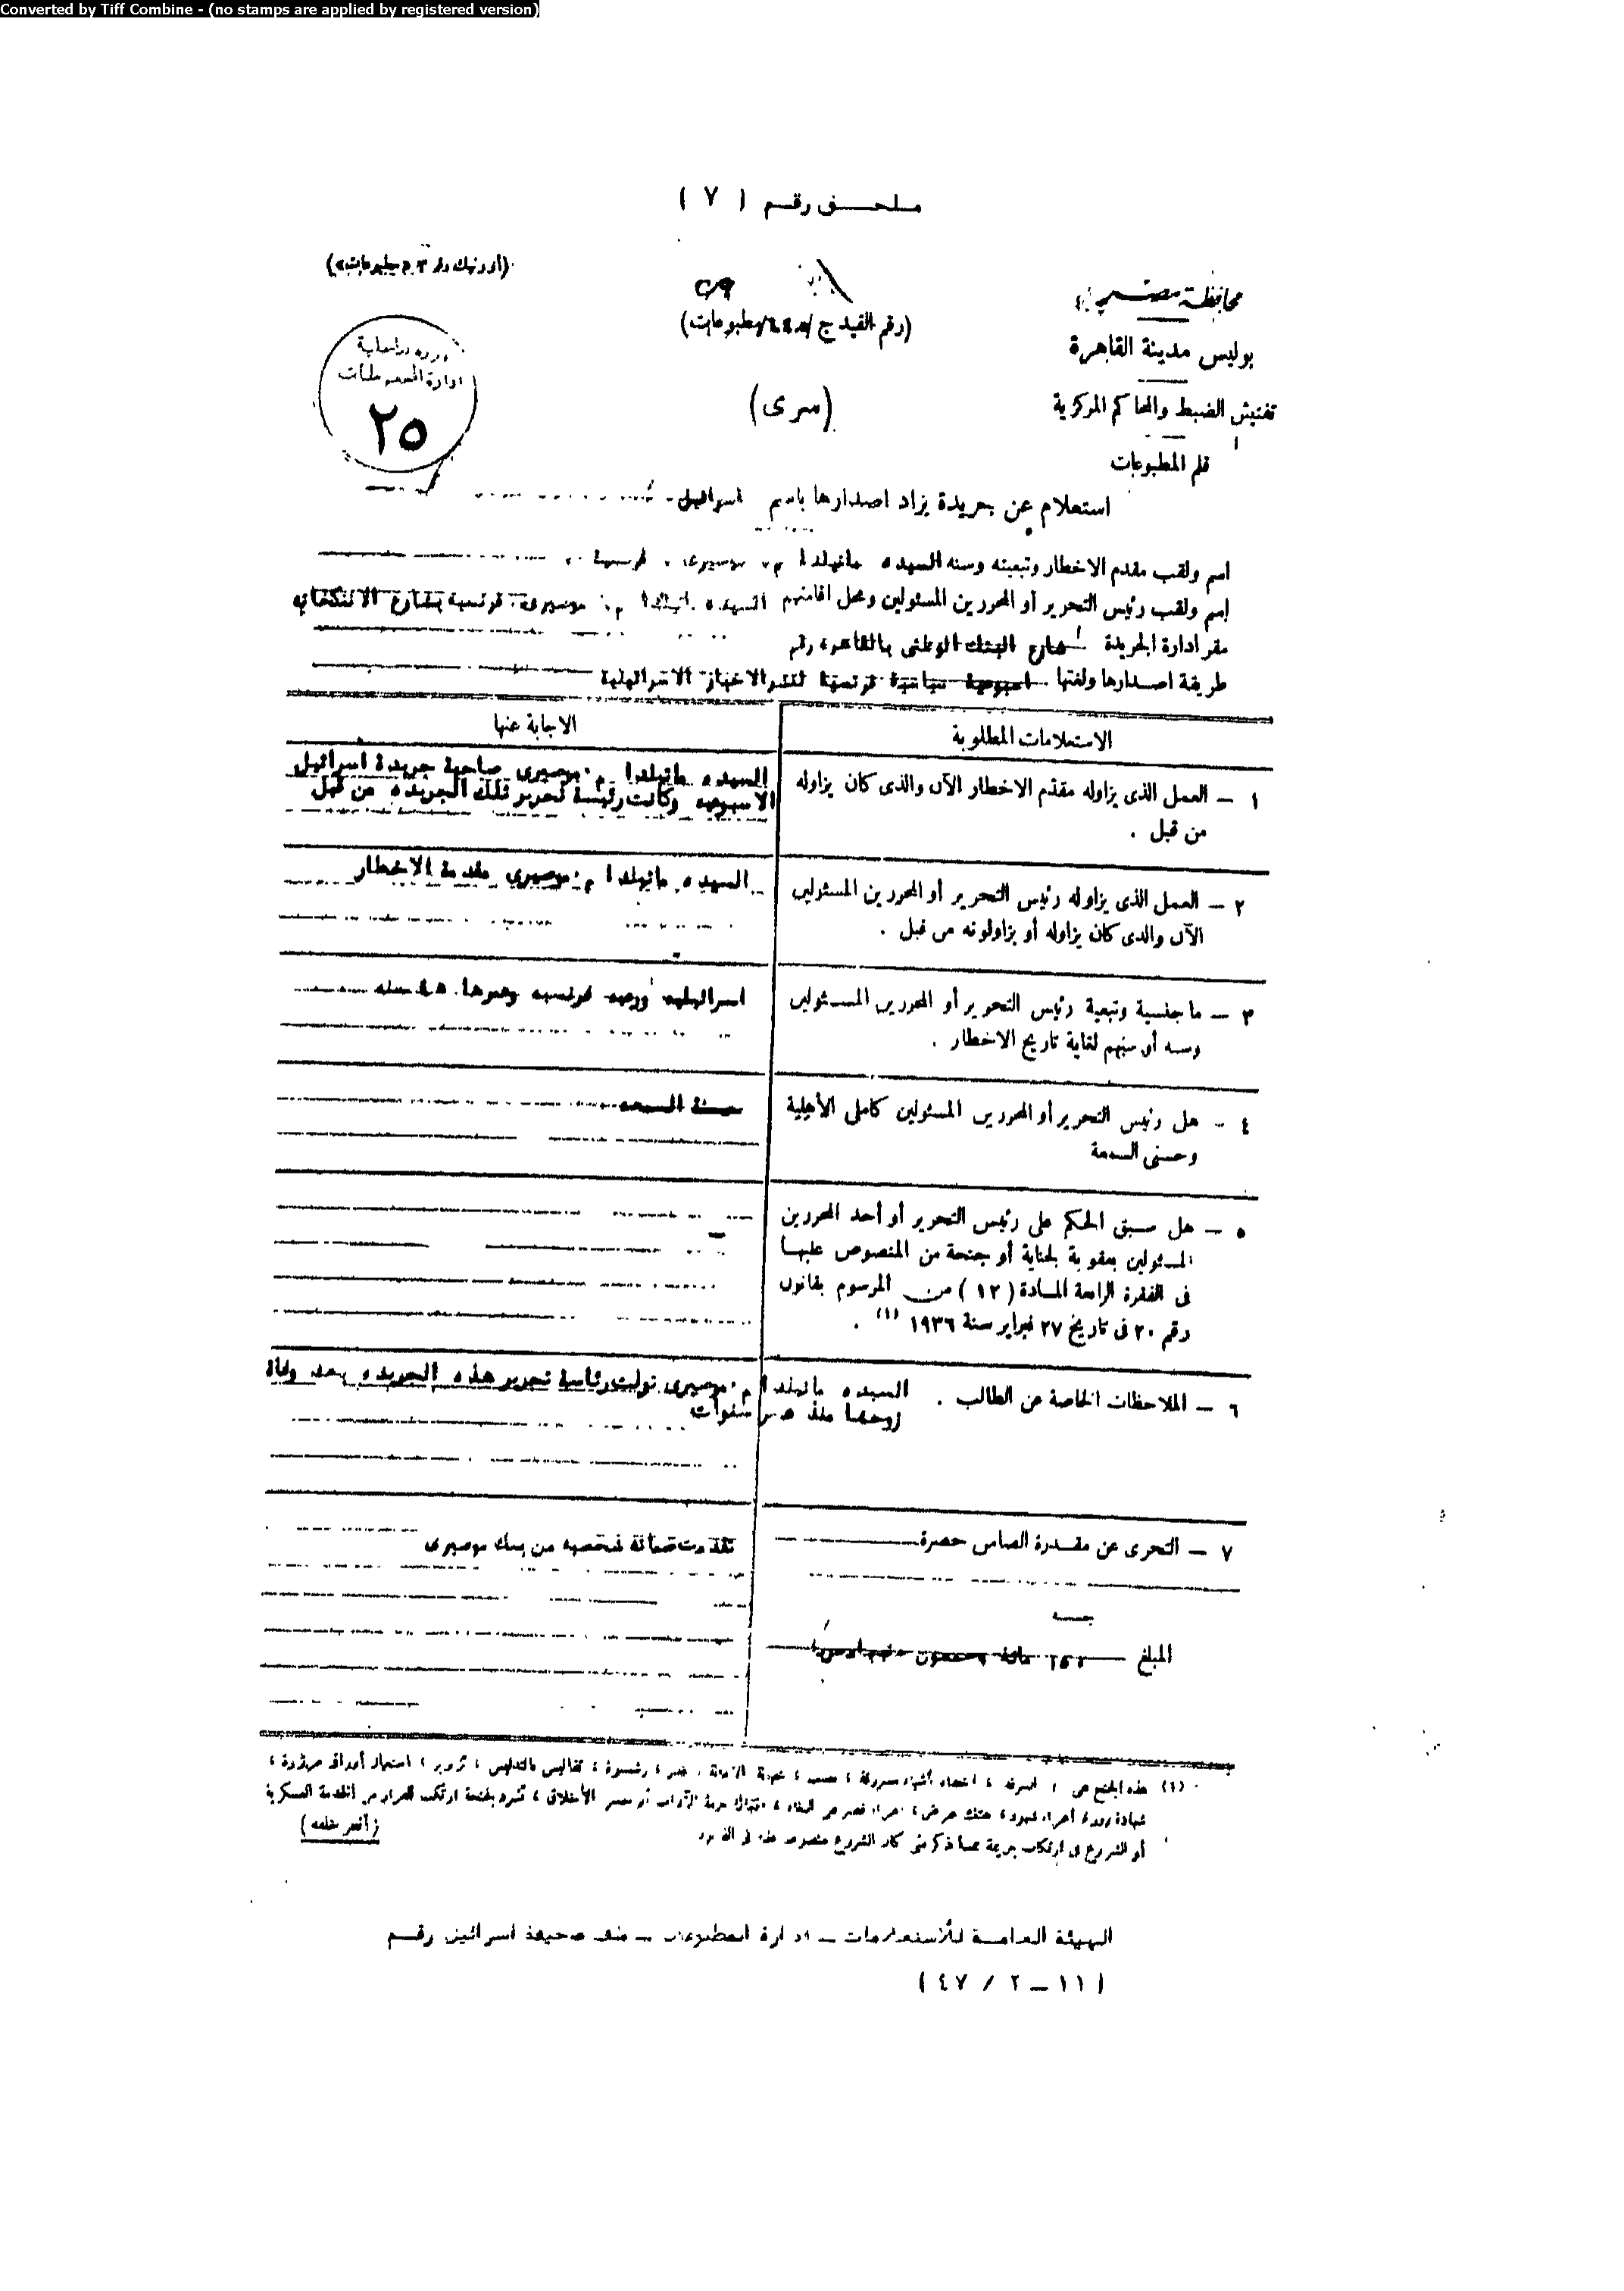 Converted by Tiff Combine - (no stamps are applied by registered version)
ملحق رقم ( ٧ )
محافظة مصر
بوليس مدينة القاهرة
(سرى)
تفتيش الضبط والمحاكم المركزية
قلم المطبوعات
ادارة المطبوعات
٢٥
استعلام عن جريدة يراد اصدارها باسم اسرائيل
اسم ولقب مقدم الاخطار وتبعيته وسنه السيده ماتيلدا م. موصيرى . فرنسية
اسم ولقب رئيس التحرير أو المحررين المسئولين ومحل اقامتهم السيده ماتيلدا م. موصيرى. فرنسية بشارع
مقر ادارة الجريدة شارع البنك الوطنى بالقاهره رقم
طريقة اصدارها ولغتها اسبوعية سياسية فرنسية لنشر الاخبار الاسرائيلية
الاستعلامات المطلوبة
الاجابة عنها
١ - العمل الذى يزاوله مقدم الاخطار الآن والذى كان يزاوله
من قبل .
السيده ماتيلدا م. موصيرى صاحبة جريدة اسرائيل
الاسبوعيه وكانت رئيسة تحرير تلك الجريده من قبل
٢ - العمل الذى يزاوله رئيس التحرير أو المحررين المسئولين
الآن والذى كان يزاوله أو يزاولونه من قبل .
السيده ماتيلدا م. موصيرى مقدمة الاخطار
٣ - ما جنسية وتبعية رئيس التحرير أو المحررين المسئولين
وسنه أو سنهم لغاية تاريخ الاخطار .
اسرائيليه ورعيه فرنسيه وعمرها سنه
٤ - هل رئيس التحرير أو المحررين المسئولين كاملى الأهلية
وحسنى السمعة
حسنة السمعه
٥ - هل سبق الحكم على رئيس التحرير أو أحد المحررين
المسئولين بعقوبة لجناية أو جنحة من المنصوص عليها
فى الفقرة الرابعة المادة ( ١٢ ) من المرسوم بقانون
رقم ٢٠ فى تاريخ ٢٧ فبراير سنة ١٩٣٦ (١) .
٦ - الملاحظات الخاصة عن الطالب .
السيده ماتيلدا م. موصيرى تولت رئاسة تحرير هذه الجريده بعد وفاة
زوجها منذ سنوات
٧ - التحرى عن مقدرة الضامن حضرة
تقدمت ضمانة شخصيه من بنك موصيرى
المبلغ ١٥٠ مائة وخمسون
(١) هذه الجنح هى : السرقة ، اخفاء أشياء مسروقة ، نصب ، خيانة الأمانة ، غش ، رشوة ، تفاليس بالتدليس ، تزوير ، استعمال أوراق مزورة ،
شهادة زور ، هتك عرض ،
أو الشروع فى ارتكاب جريمة مما ذكر متى كان الشروع منصوص عنه فى
( أنظر خلفه )
الهيئة العامة للأستعلامات - ادارة المطبوعات - ملف صحيفة اسرائيل رقم
( ١١ - ٢ / ٤٧ )